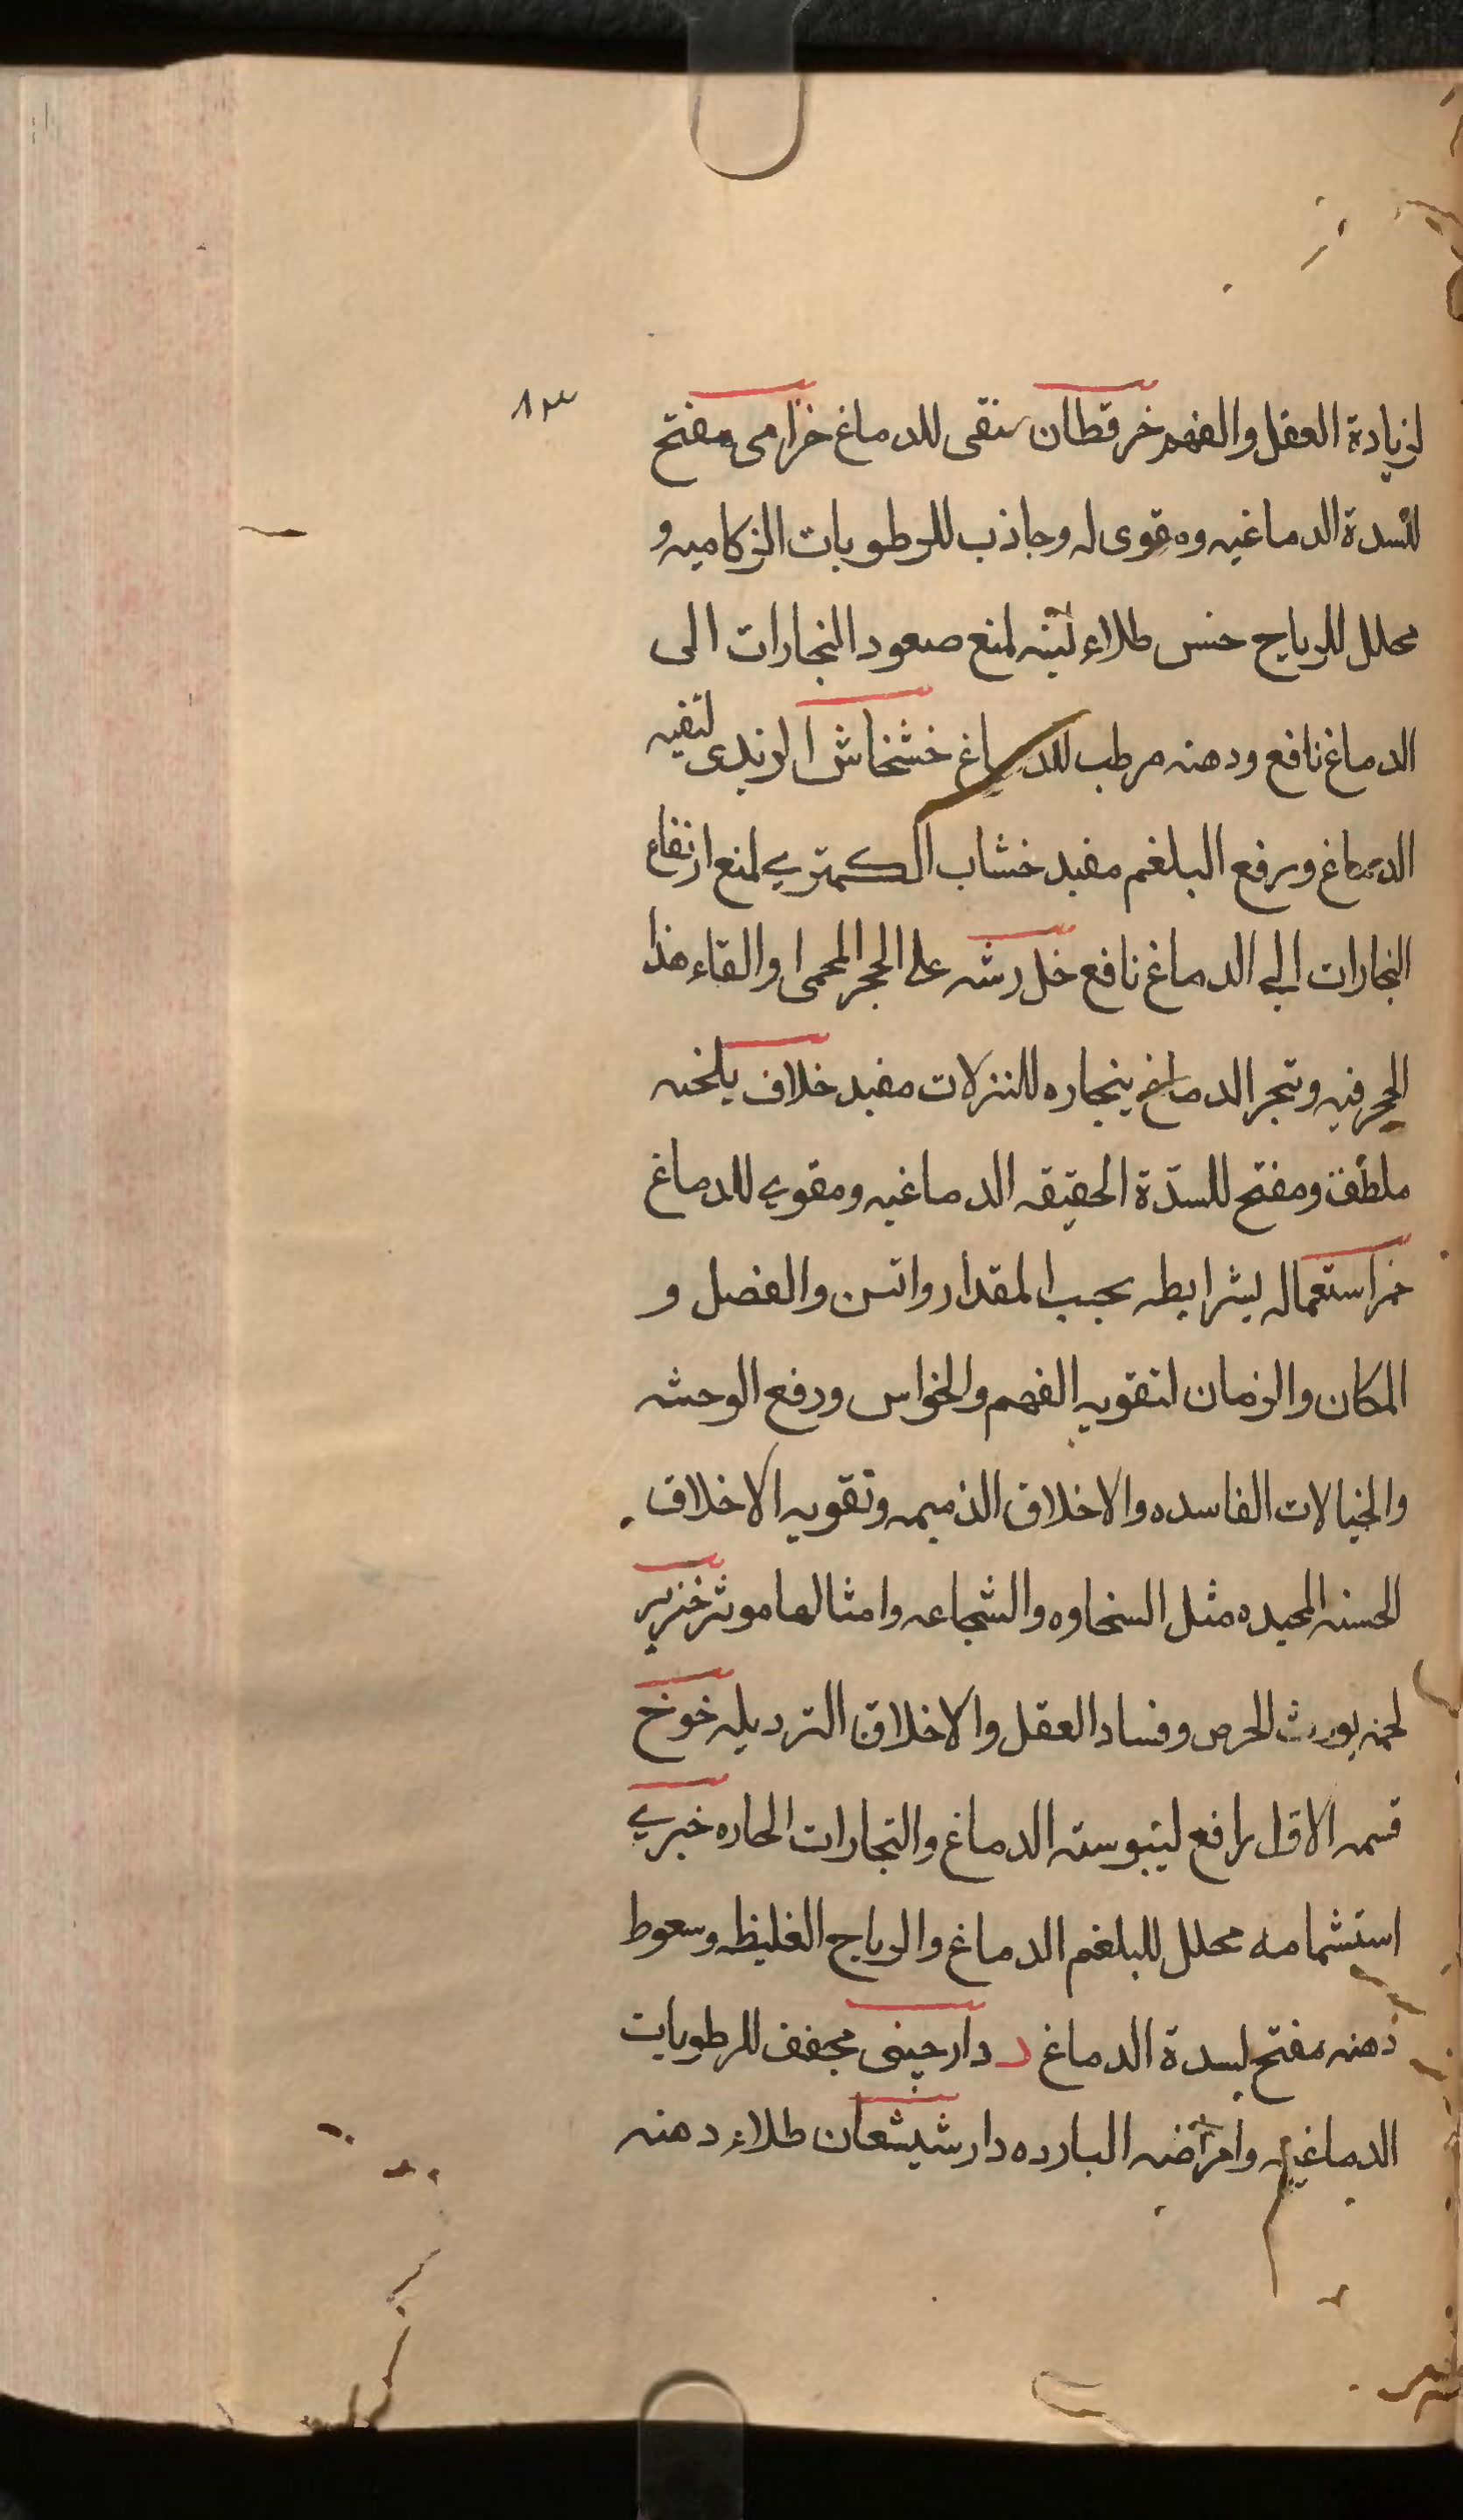 ٨٣
لزيادة العقل والفهم خرقطان ينقى للدماغ خزامى مفتح
للسدة الدماغيه ومقوى له وجاذب للرطوبات الزكاميه و
محلل للرياح خس طلاء لبنه لمنع صعود البخارات الى
الدماغ نافع ودهنه مرطب للدماغ خشخاش الزبدى لتقيه
الدماغ ورفع البلغم مفيد خشاب الكمترى لمنع ارتفاع
البخارات الى الدماغ نافع خل رشه على الحجر المحمى والقاء هذا
الحجر فيه وتبخر الدماغ ببخاره للنزلات مفيد خلاف يلخيه
ملطف ومفتح للسدّة الحقيقه الدماغيه ومقوى للدماغ
خمر استعماله بشرايطه بحسب المقدار والسن والفصل و
المكان والزمان لتقويه الفهم والحواس ودفع الوحشه
والخيالات الفاسده والاخلاق الذميمه وتقويه الاخلاق
الحسنه الحميده مثل السخاوه والشجاعه وامثالها موثر خنزير
لحمه يورث الحرص وفساد العقل والاخلاق الترديله خوخ
قسمه الاول رافع ليبوسته الدماغ والبخارات الحاره خيرى
استشمامه محلل للبلغم الدماغ والرياح الغليظه وسعوط
دهنه مفتح لسدة الدماغ د دارچينى مجفف للرطوبات
الدماغيه وامراضه البارده دارشيشعان طلاء دهنه